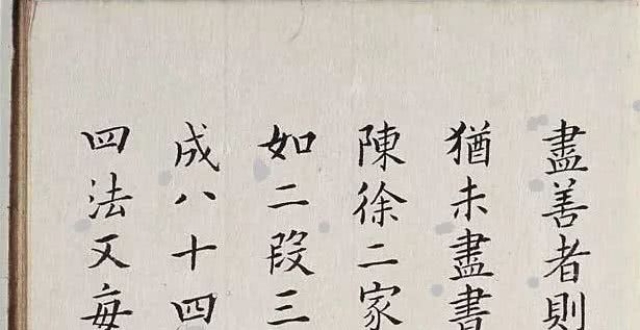 盡善者則
猶未盡書
陳徐二家
如二段三
成八十四
四法又每